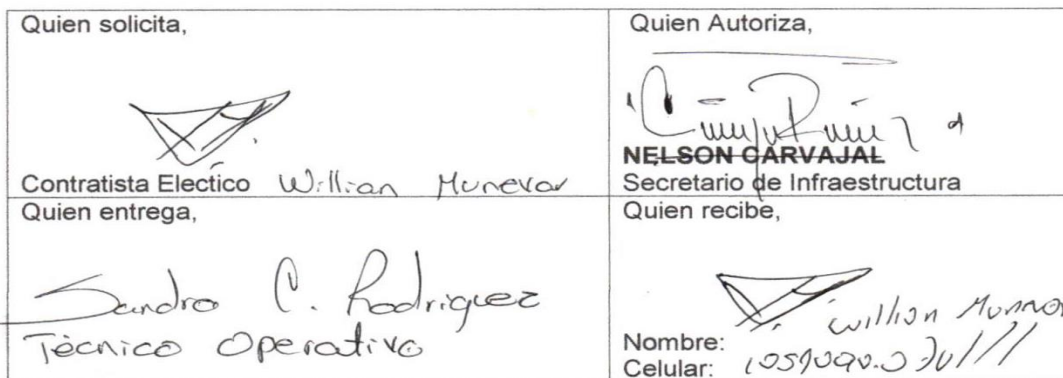 Quien solicita,
Contratista Electico Willian Munevar
Quien Autoriza,
NELSON CARVAJAL
Secretario de Infraestructura
Quien entrega,
Sandro C. Rodriguez
Tecnico Operativo
Quien recibe,
Willian
Nombre:
Celular: